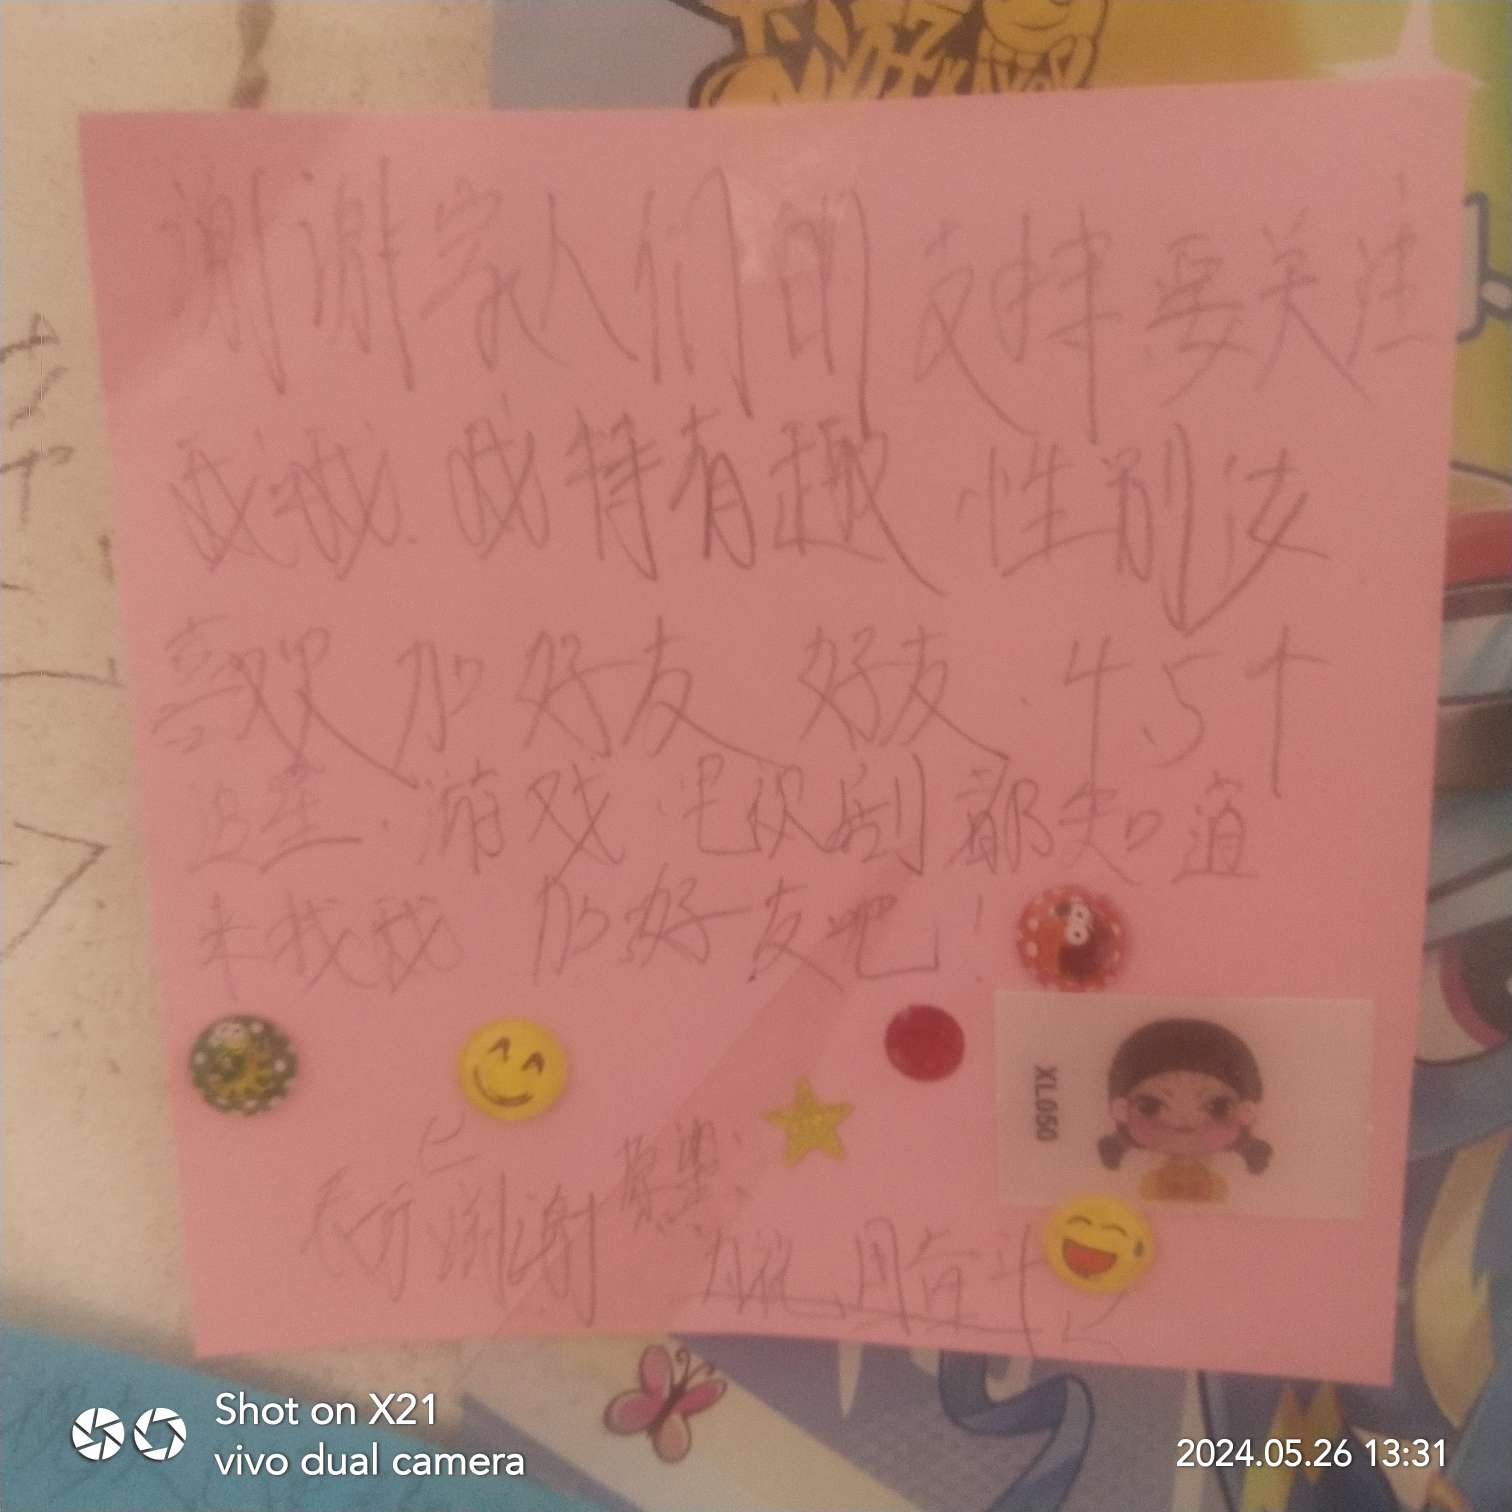 谢谢家人们的支持要关注
我我.我特有趣 性别女
喜欢加好友 好友.45个
这些.游戏 电视剧都知道
来找我 加好友吧!
XL050
谢谢
奋斗
Shot on X21
vivo dual camera
2024.05.26 13:31